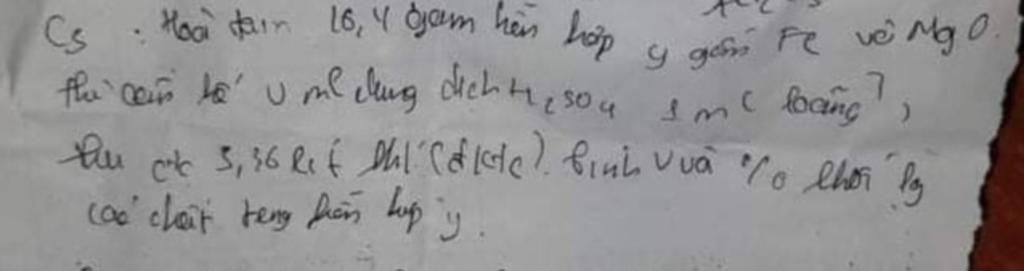 C5 : Hoà tan 16,4 gam hỗn hợp y gồm Fe và MgO.
thì cần tố V ml dung dịch H2SO4 1M (loãng),
thu đc 3,36 lít khí (đktc). Tính V và % khối lg
các chất trong hỗn hợp y.